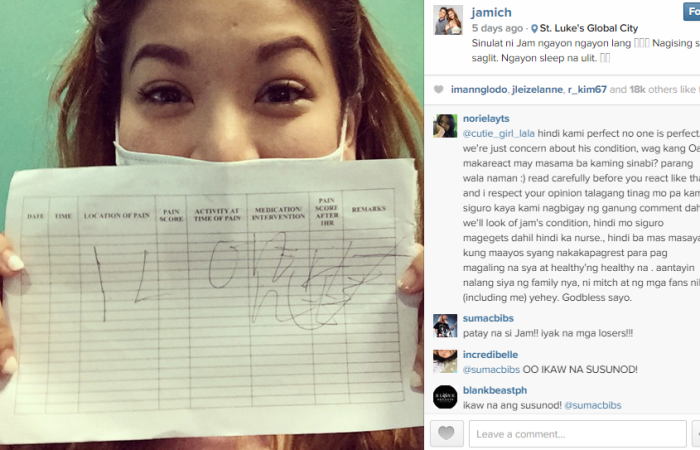 DATE
TIME
LOCATION OF PAIN
PAIN SCORE
ACTIVITY AT TIME OF PAIN
MEDICATION/ INTERVENTION
PAIN SCORE AFTER 1HR
REMARKS
I L O
jamich
Fo
5 days ago · St. Luke's Global City
Sinulat ni Jam ngayon ngayon lang Nagising s
saglit. Ngayon sleep na ulit.
imannglodo, jleizelanne, r_kim67 and 18k others like t
norielayts
@cutie_girl_lala hindi kami perfect no one is perfect.
we're just concern about his condition, wag kang Oa
makareact may masama ba kaming sinabi? parang
wala naman :) read carefully before you react like tha
and i respect your opinion talagang tinag mo pa kam
siguro kaya kami nagbigay ng ganung comment dah
we'll look of jam's condition, hindi mo siguro
magegets dahil hindi ka nurse., hindi ba mas masaya
kung maayos syang nakakapagrest para pag
magaling na sya at healthy'ng healthy na . aantayin
nalang siya ng family nya, ni mitch at ng mga fans nil
(including me) yehey. Godbless sayo.
sumacbibs
patay na si Jam!! iyak na mga losers!!!
incredibelle
@sumacbibs OO IKAW NA SUSUNOD!
blankbeastph
ikaw na ang susunod! @sumacbibs
Leave a comment...